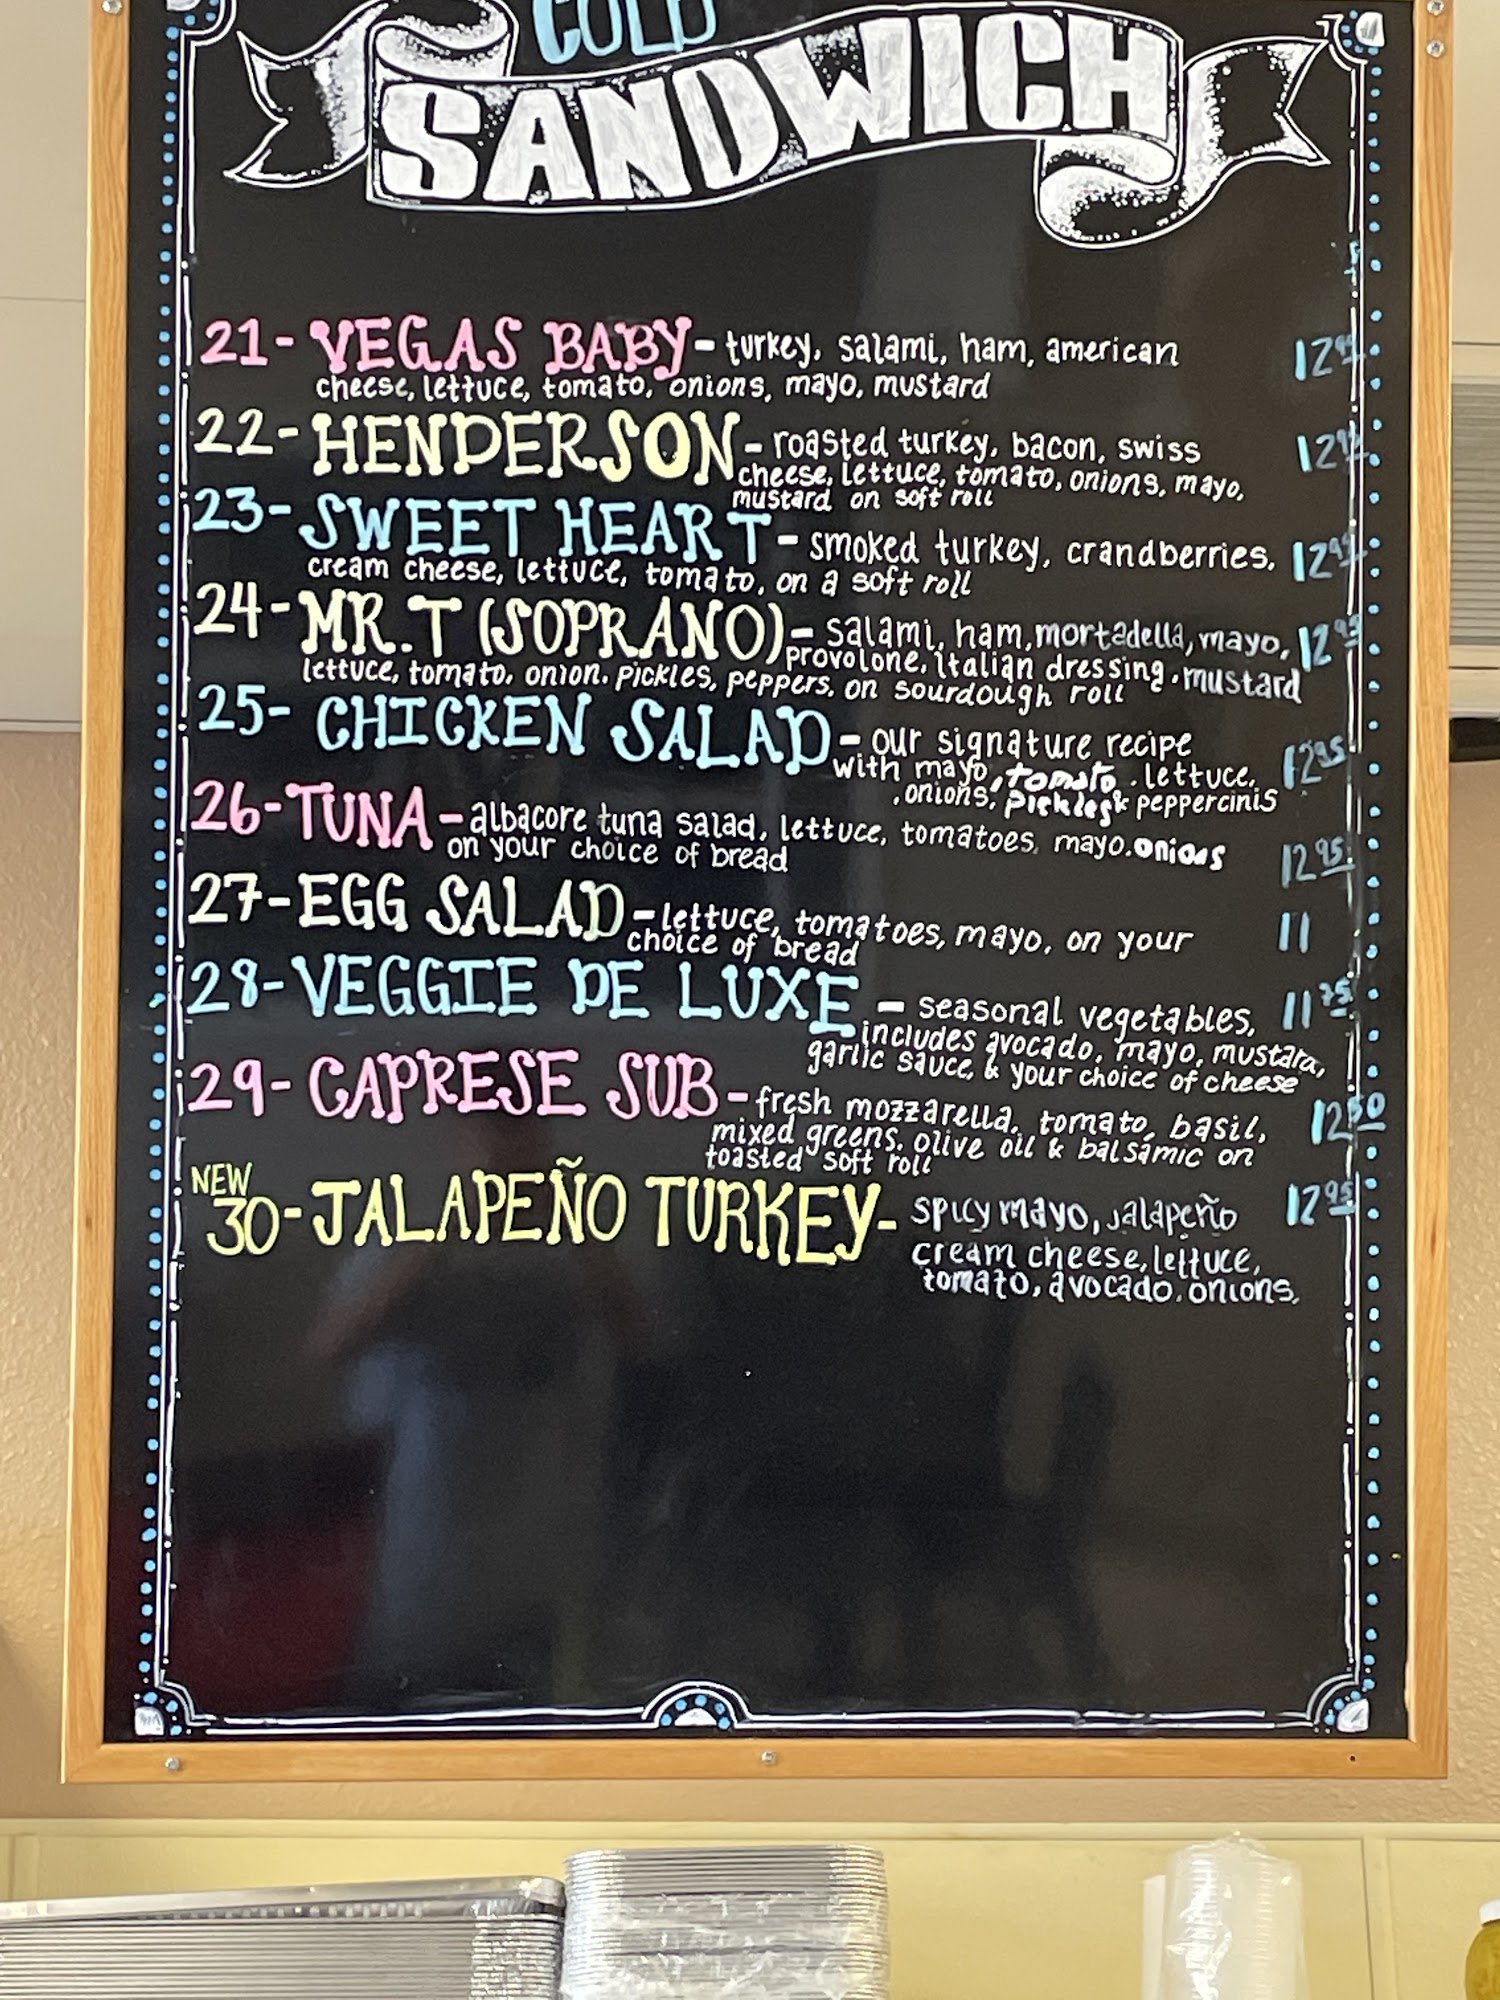 COLD
SANDWICH
21- VEGAS BABY - turkey, salami, ham, american 12 95
cheese, lettuce, tomato, onions, mayo, mustard
22- HENDERSON - roasted turkey, bacon, swiss 12 95
cheese, lettuce, tomato, onions, mayo,
mustard on soft roll
23- SWEET HEART - smoked turkey, crandberries, 12 95
cream cheese, lettuce, tomato, on a soft roll
24- MR. T (SOPRANO) - salami, ham, mortadella, mayo, 12 95
provolone, italian dressing, mustard
lettuce, tomato, onion, pickles, peppers, on sourdough roll
25- CHICKEN SALAD - our signature recipe 12 95
with mayo, tomato, lettuce,
, onions, pickles & peppercinis
26- TUNA - albacore tuna salad, lettuce, tomatoes, mayo, onions 12 95
on your choice of bread
27- EGG SALAD - lettuce, tomatoes, mayo, on your 11
choice of bread
28- VEGGIE DE LUXE - seasonal vegetables, 11 75
includes avocado, mayo, mustard,
garlic sauce, & your choice of cheese
29- CAPRESE SUB - fresh mozzarella, tomato, basil, 12 50
mixed greens, olive oil & balsamic on
toasted soft roll
NEW
30- JALAPEÑO TURKEY - spicy mayo, jalapeño 12 95
cream cheese, lettuce,
tomato, avocado, onions.